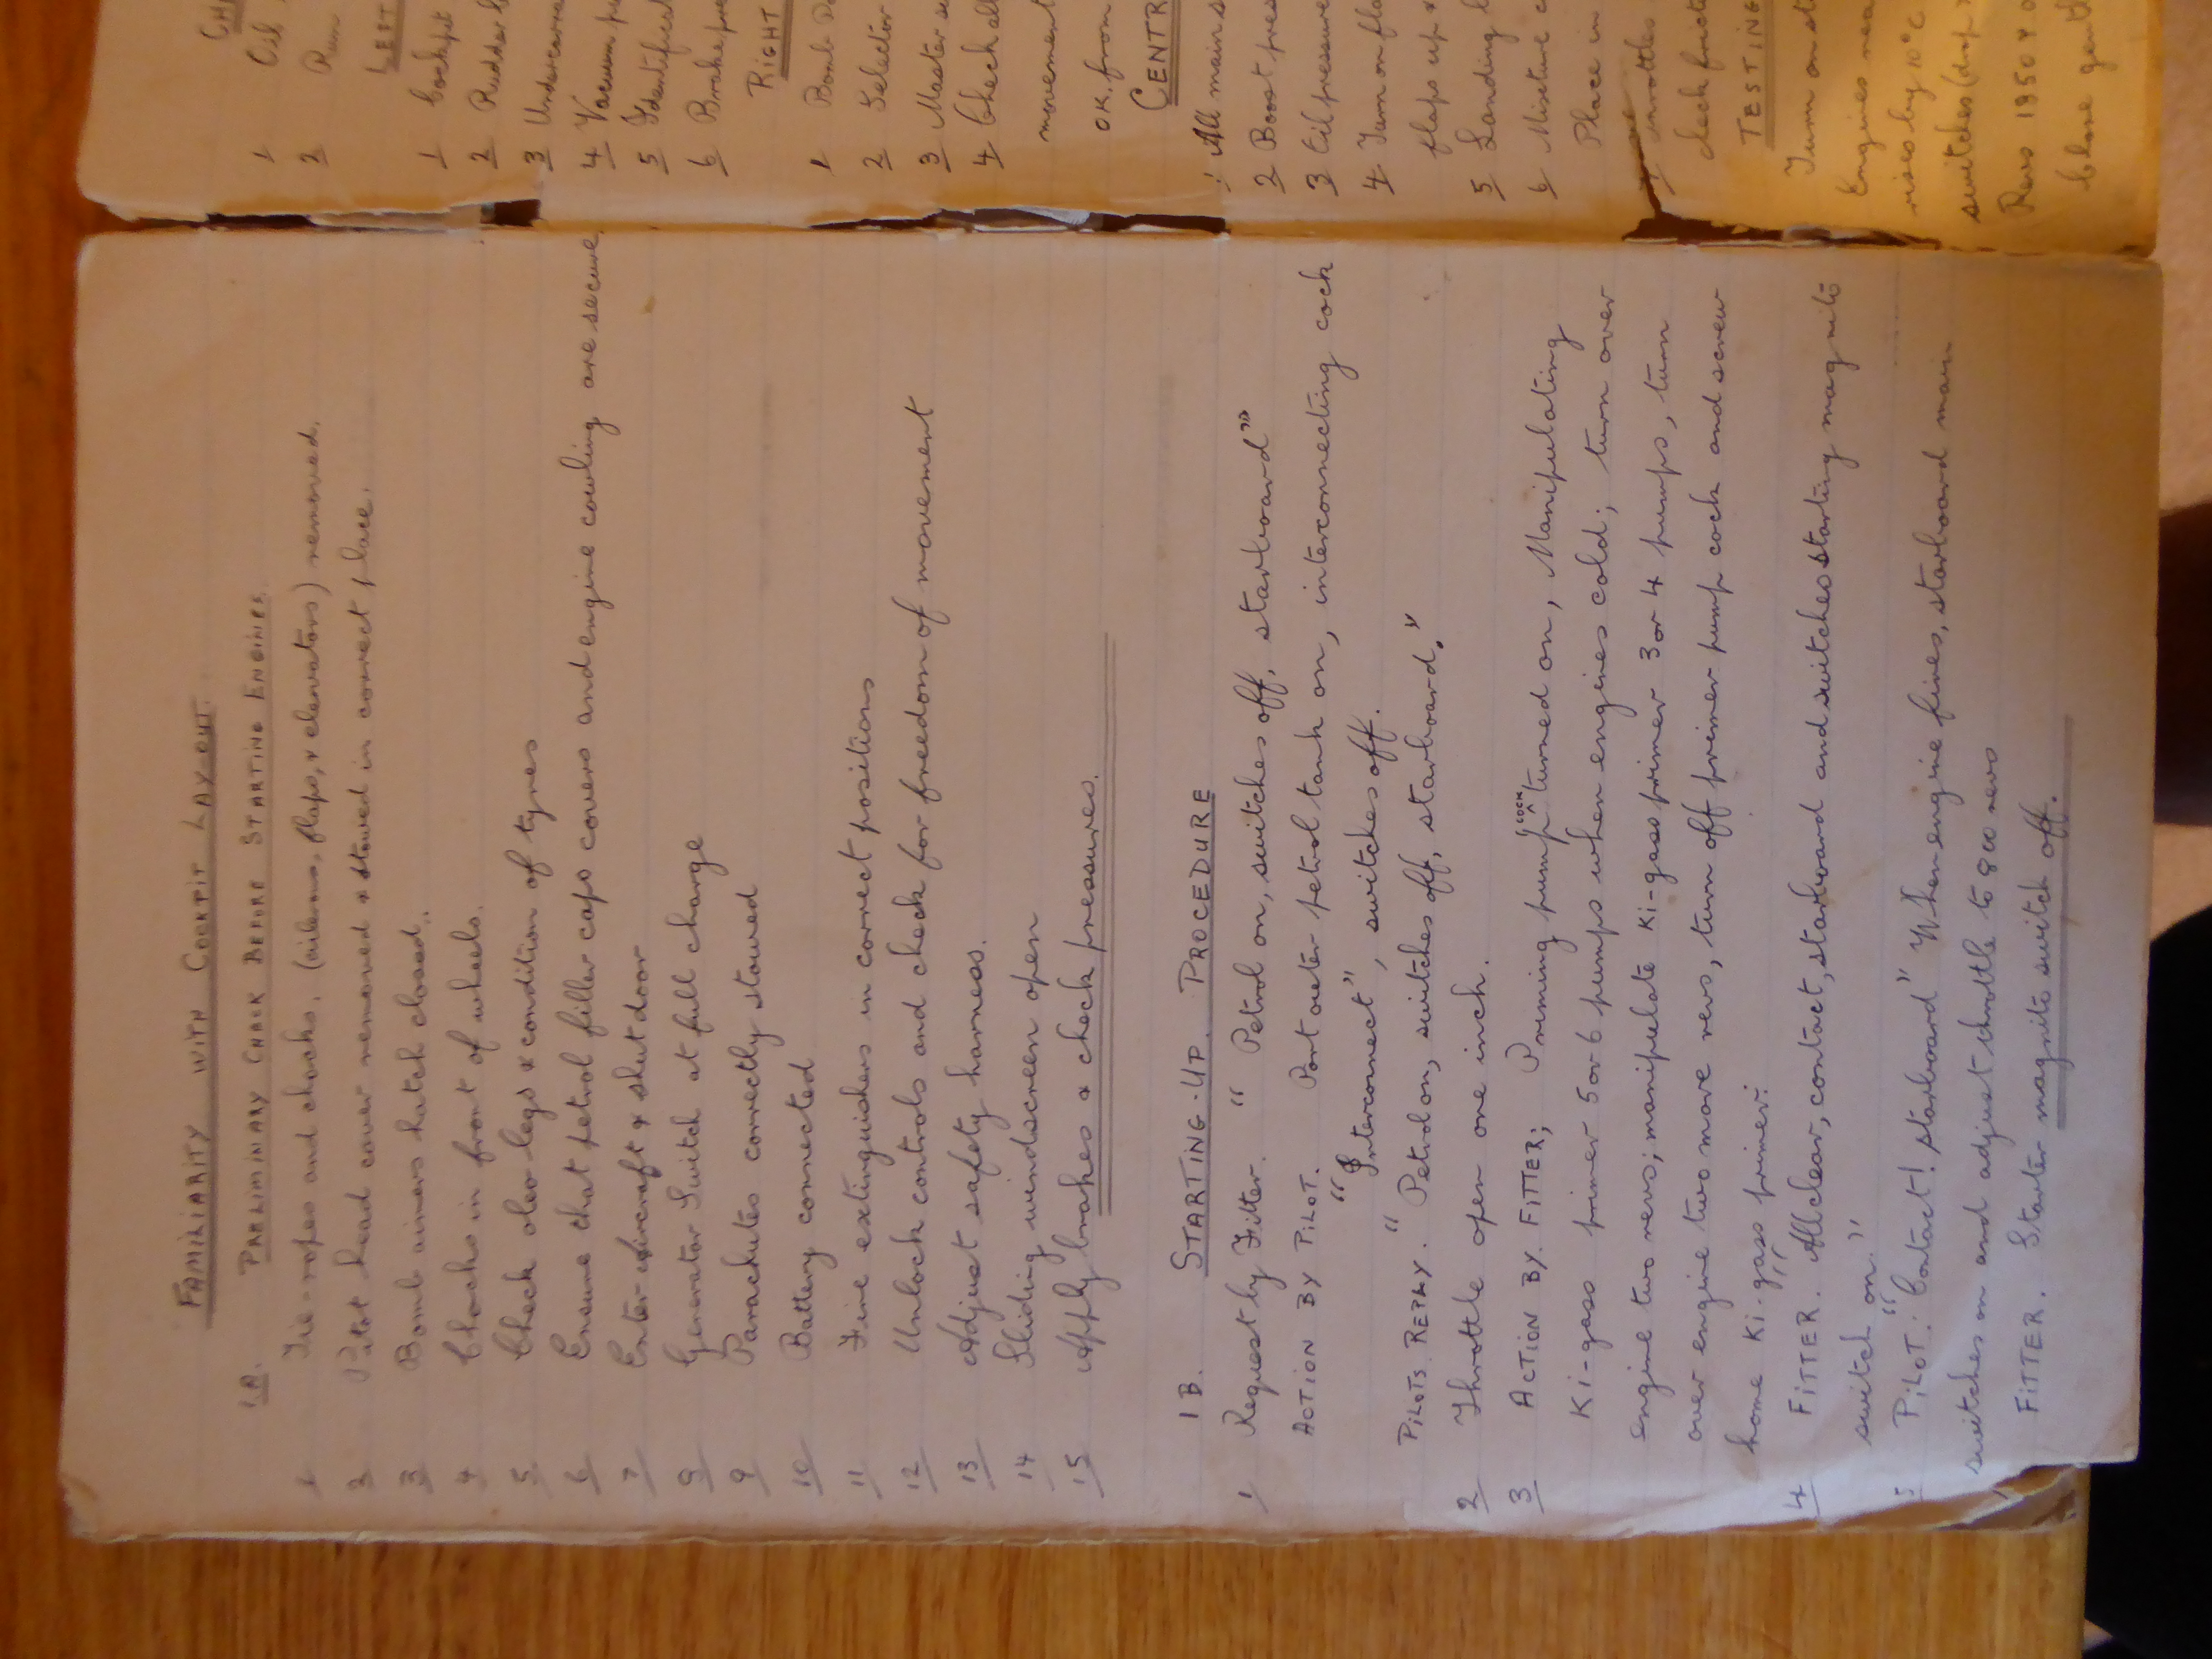 FAMILIARITY WITH COCKPIT LAY-OUT.
1A. PRELIMINARY CHECK BEFORE STARTING ENGINES.
1 Tie-ropes and chocks. (ailerons, flaps, & elevators) removed.
2 Pitot head cover removed & stowed in correct place.
3 Bomb aimers hatch closed.
4 Chocks in front of wheels.
5 Check oleo-legs & condition of tyres
6 Ensure that petrol filler caps covers and engine cowling are secure.
7 Enter aircraft & shut door
8 Generator Switch at full charge
9 Parachutes correctly stowed
10 Battery connected
11 Fire extinguishers in correct positions
12 Unlock controls and check for freedom of movement
13 Adjust safety harness.
14 Sliding windscreen open
15 Apply brakes & check pressures.
1B. STARTING-UP. PROCEDURE
1 Request by Fitter. " Petrol on, switches off, starboard"
ACTION BY PILOT. Port outer petrol tank on, interconnecting cock
" Interconnect", switches off.
PILOTS REPLY. " Petrol on, switches off, starboard."
2 Throttle open one inch.
3 ACTION BY. FITTER; Priming pump COCK turned on, Manipulating
Ki-gass primer 5 or 6 pumps when engines cold; turn over
engine two revs; manipulate Ki-gass primer 3 or 4 pumps, turn
over engine two more revs, turn off primer pump cock and screw
home Ki-gass primer:
4 FITTER. "All clear, contact, starboard and switches starting magnito
switch on."
5 PILOT: "Contact! starboard" When engine fires, starboard main
switches on and adjust throttle to 800 revs
FITTER. Starter magnito switch off.
1 Oil
2 Run
LEFT
1 Cockpit
2 Rudder
3
4 Vacuum
5
6 Brake
RIGHT
1 Bomb
2 Selector
3 Master
4 Check all
movement
OK. from
CENTR
1 All main
2 Boost pres
3 Oil pressure
4 Turn on
flaps up &
5 Landing
6 Mixture
Place in
7 Throttles
check frict
TESTING
Turn on
Engines
rises by 10°C
switches (drop
Revs 1850
close